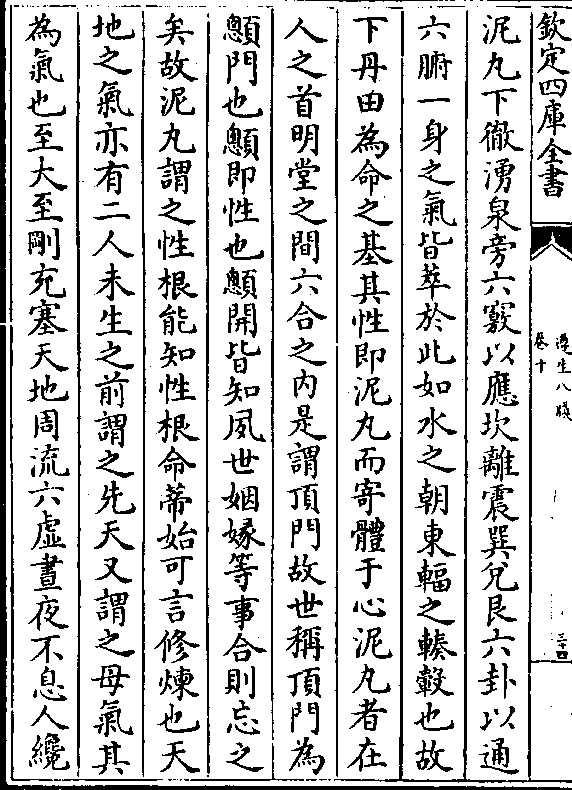 欽定四庫全書
遵生八牋
卷十
三十四
泥丸下徹湧泉旁六竅以應坎離震巽兌艮六卦以通
六腑一身之氣皆萃於此如水之朝東輻之輳轂也故
下丹田為命之基其性即泥丸而寄體于心泥丸者在
人之首明堂之間六合之內是謂頂門故世稱頂門為
顖門也顖即性也顖開皆知夙世姻緣等事合則忘之
矣故泥丸謂之性根能知性根命蒂始可言修煉也天
地之氣亦有二人未生之前謂之先天又謂之母氣其
為氣也至大至剛充塞天地周流六虛晝夜不息人纔